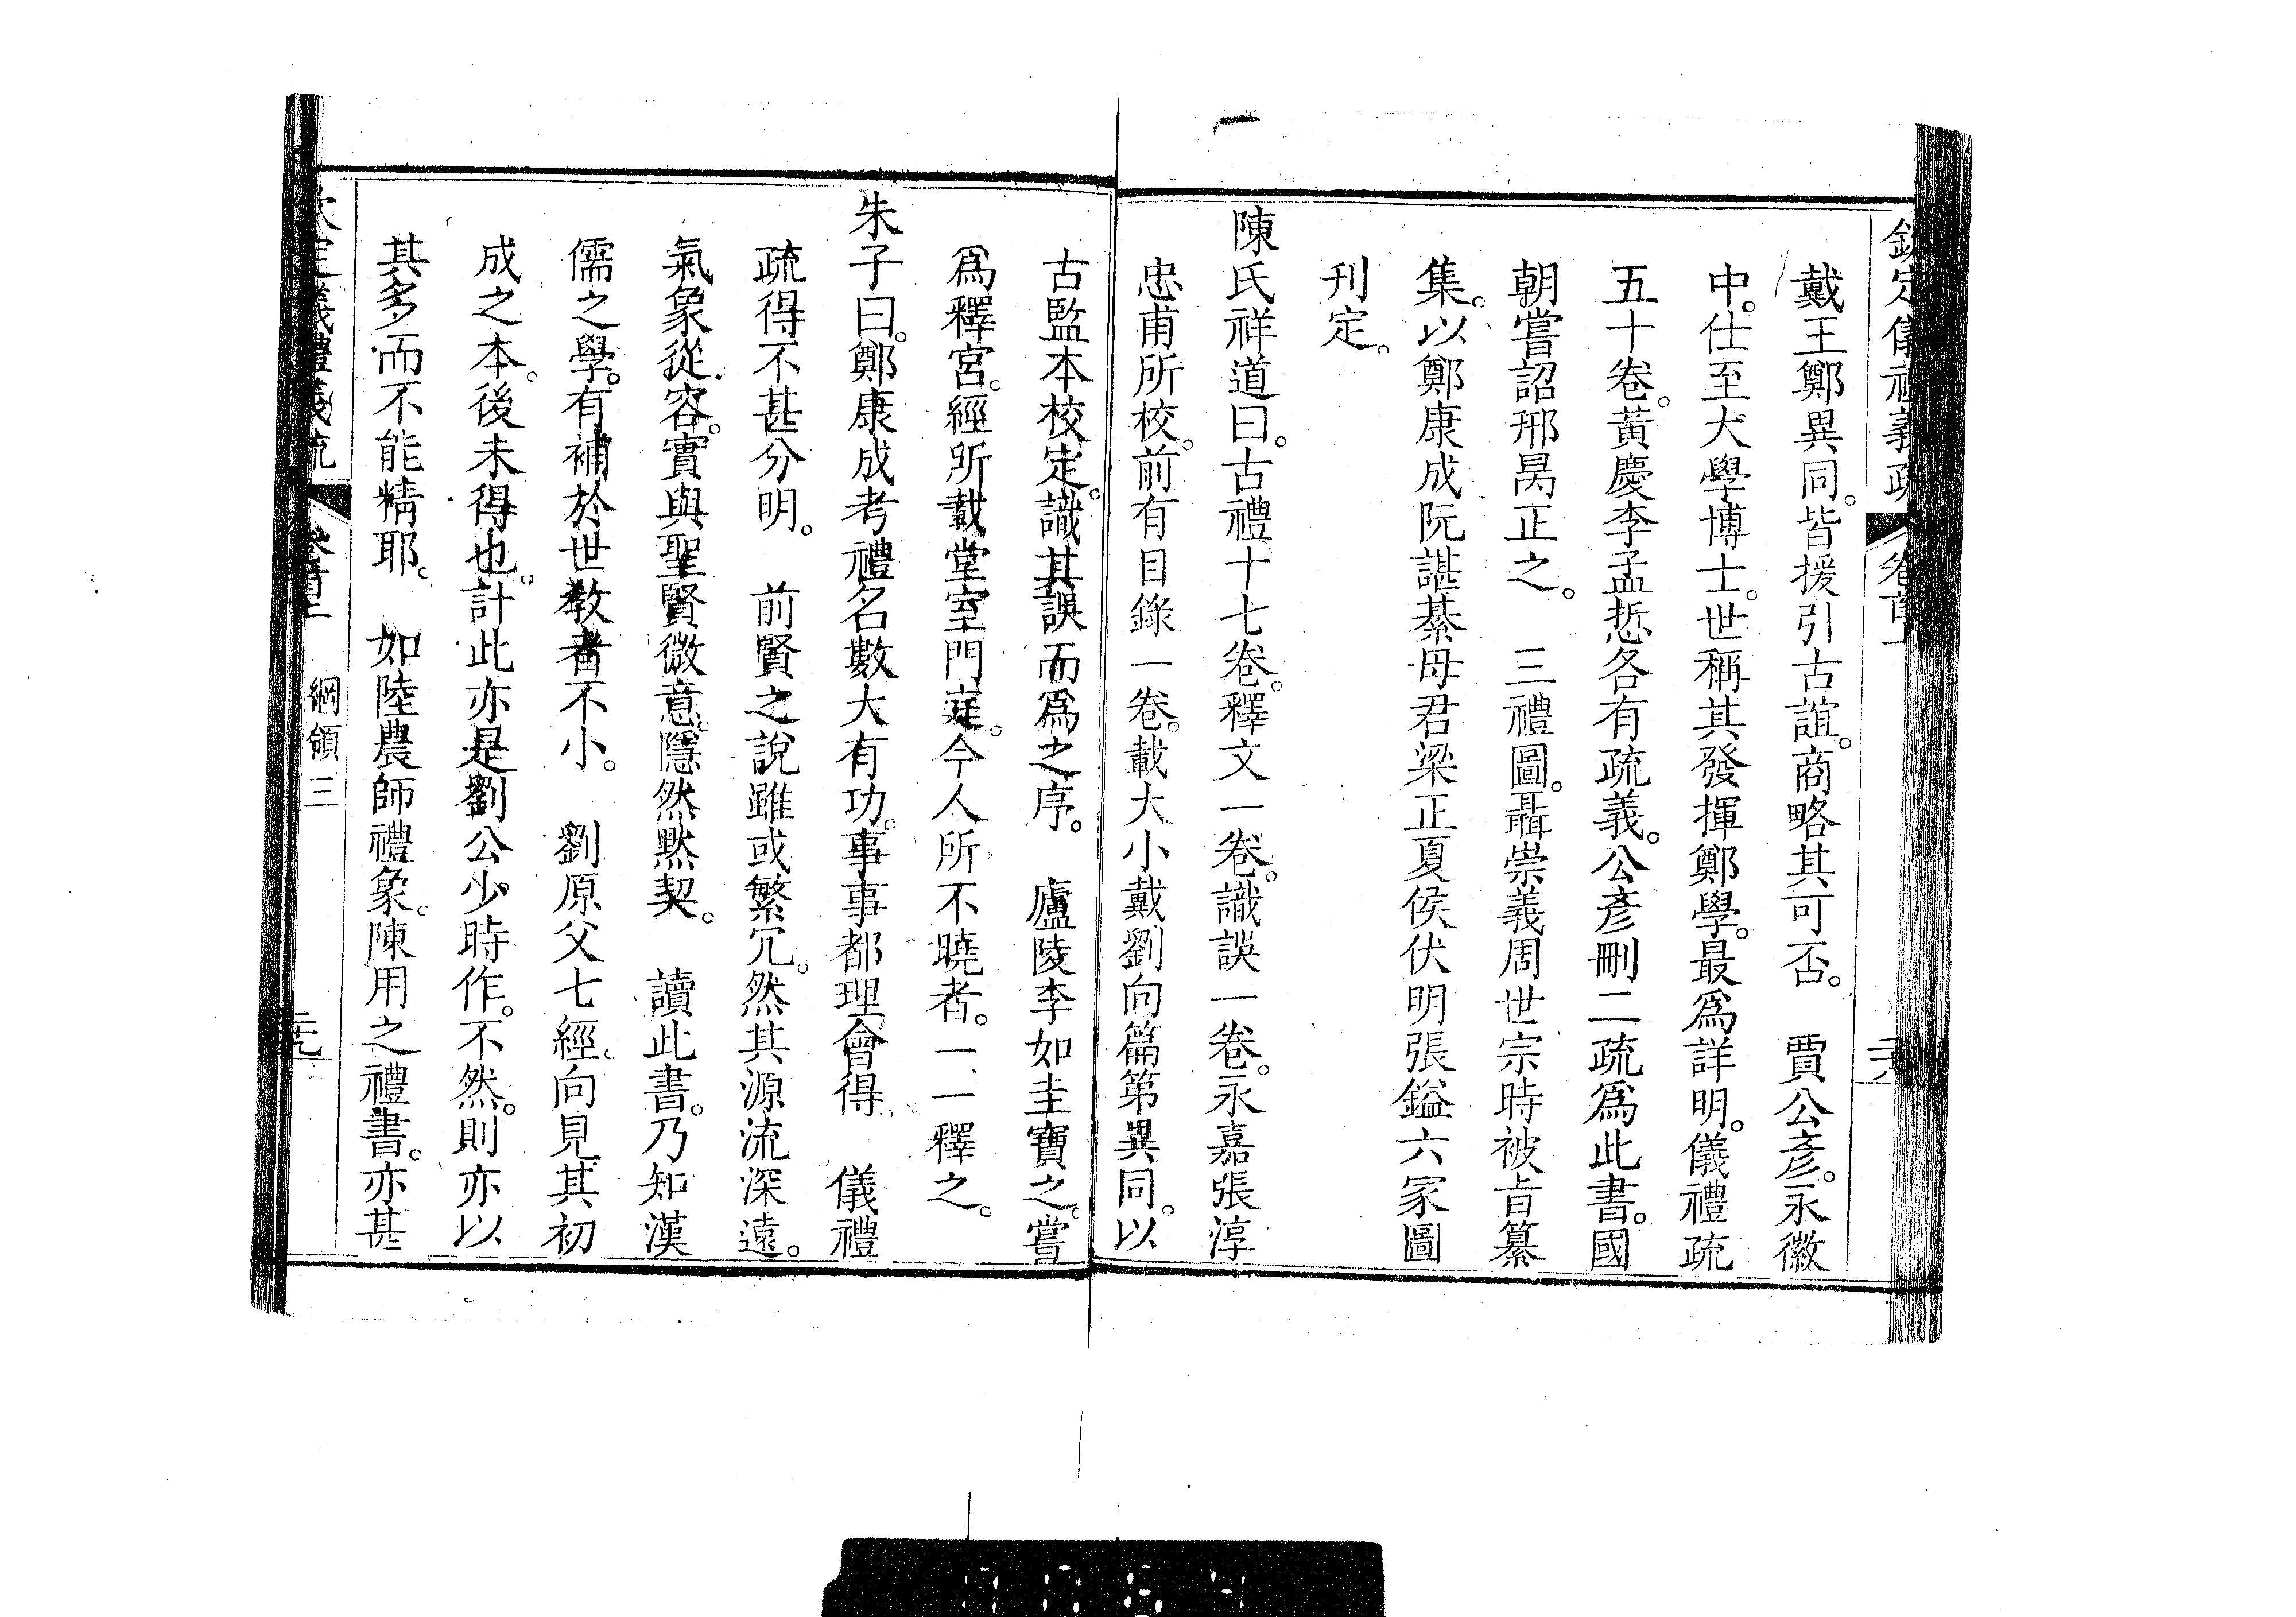 欽定儀禮義疏 卷首上 二六
戴王鄭異同。皆援引古誼。商略其可否。 賈公彥。永徽
中。仕至大學博士。世稱其發揮鄭學。最爲詳明。儀禮疏
五十卷。黃慶李孟悊各有疏義。公彥刪二疏爲此書。國
朝嘗詔邢昺正之。 三禮圖。聶崇義周世宗時被旨纂
集。以鄭康成阮諶綦母君梁正夏侯伏明張鎰六家圖
刊定。
陳氏祥道曰。古禮十七卷。釋文一卷。識誤一卷。永嘉張淳
忠甫所校。前有目錄一卷。載大小戴劉向篇第異同。以
古監本校定。識其誤而爲之序。 廬陵李如圭寶之。嘗
爲釋宮。經所載堂室門庭。今人所不曉者。一一釋之。
朱子曰。鄭康成考禮名數大有功。事事都理會得。 儀禮
疏得不甚分明。 前賢之說雖或繁冗。然其源流深遠。
氣象從容。實與聖賢微意。隱然默契。 讀此書。乃知漢
儒之學。有補於世敎者不小。 劉原父七經。向見其初
成之本。後未得也。計此亦是劉公少時作。不然。則亦以
其多而不能精耶。 如陸農師禮象。陳用之禮書。亦甚
欽定儀禮義疏 卷首上 綱領三 二九